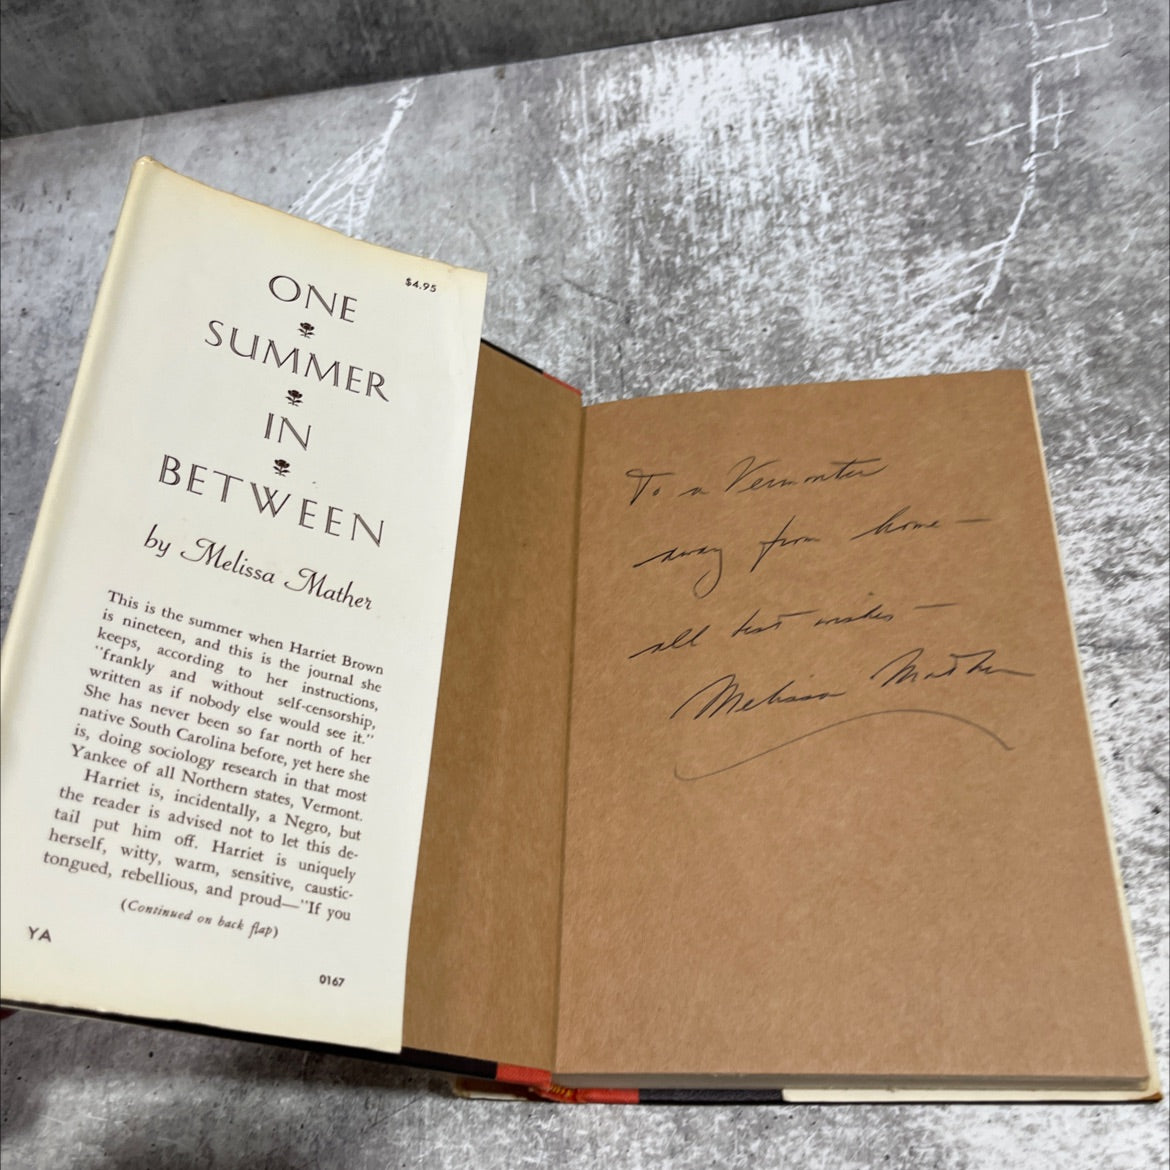 $4.95
ONE
SUMMER
IN
BETWEEN
by Melissa Mather
This is the summer when Harriet Brown
is nineteen, and this is the journal she
keeps, according to her instructions,
"frankly and without self-censorship,
written as if nobody else would see it."
She has never been so far north of her
native South Carolina before, yet here she
is, doing sociology research in that most
Yankee of all Northern states, Vermont.
Harriet is, incidentally, a Negro, but
the reader is advised not to let this de-
tail put him off. Harriet is uniquely
herself, witty, warm, sensitive, caustic-
tongued, rebellious, and proud—"If you
(Continued on back flap)
YA
0167
To a Vermonter
away from home —
all best wishes —
Melissa Mather